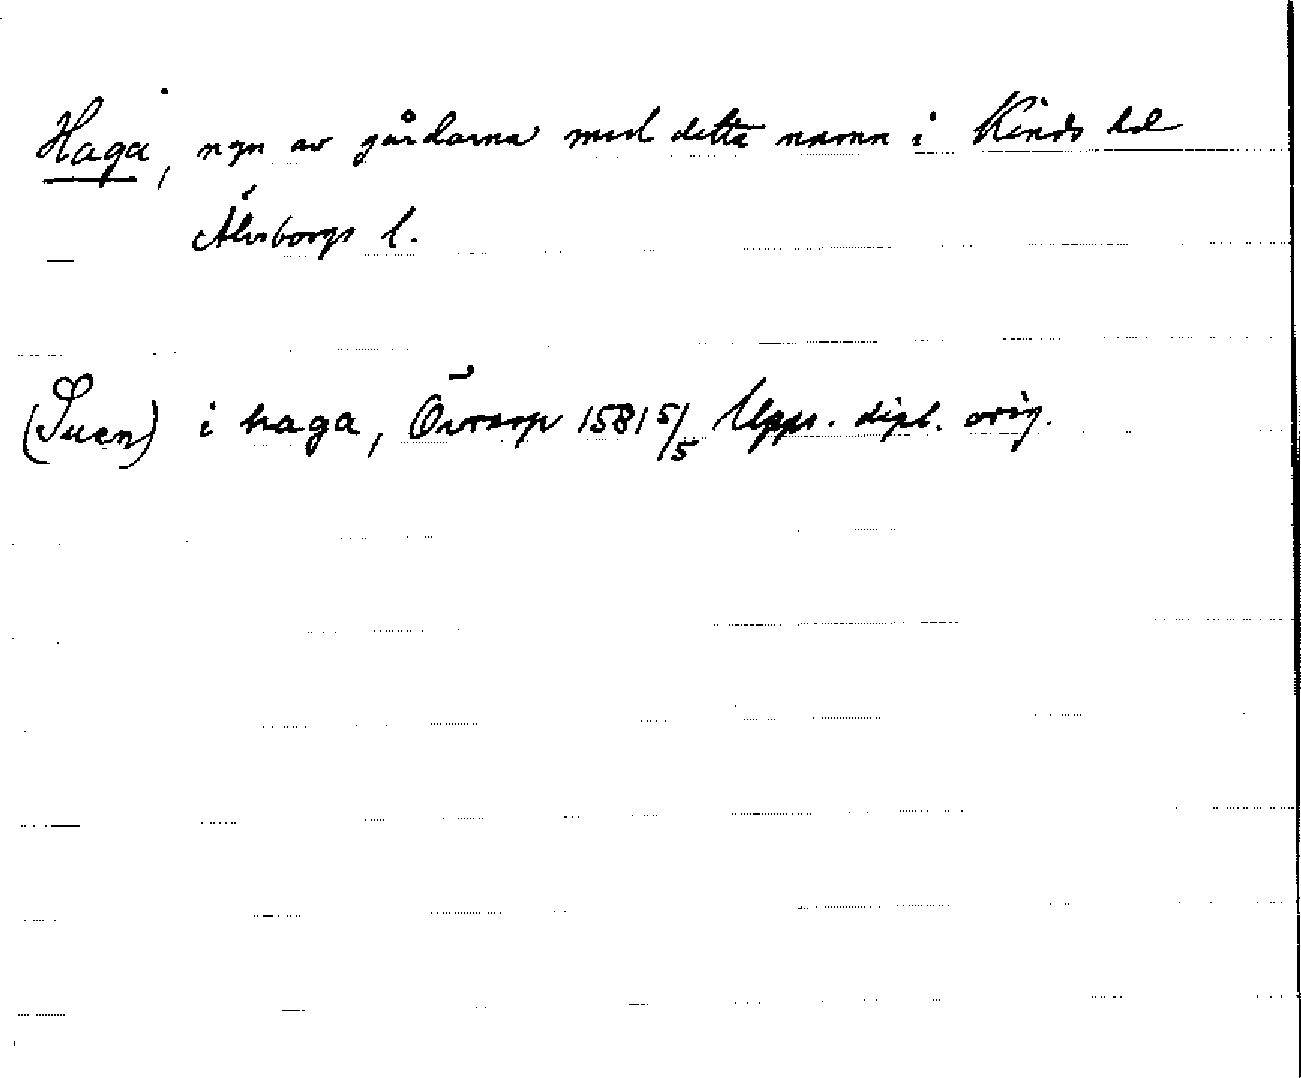 Haga, ngn av gårdarna med detta namn i Kinds hd
Älvsborgs l.
(Suen) i haga, Övrarp 1581 5/5 Upps. dipl. orig.